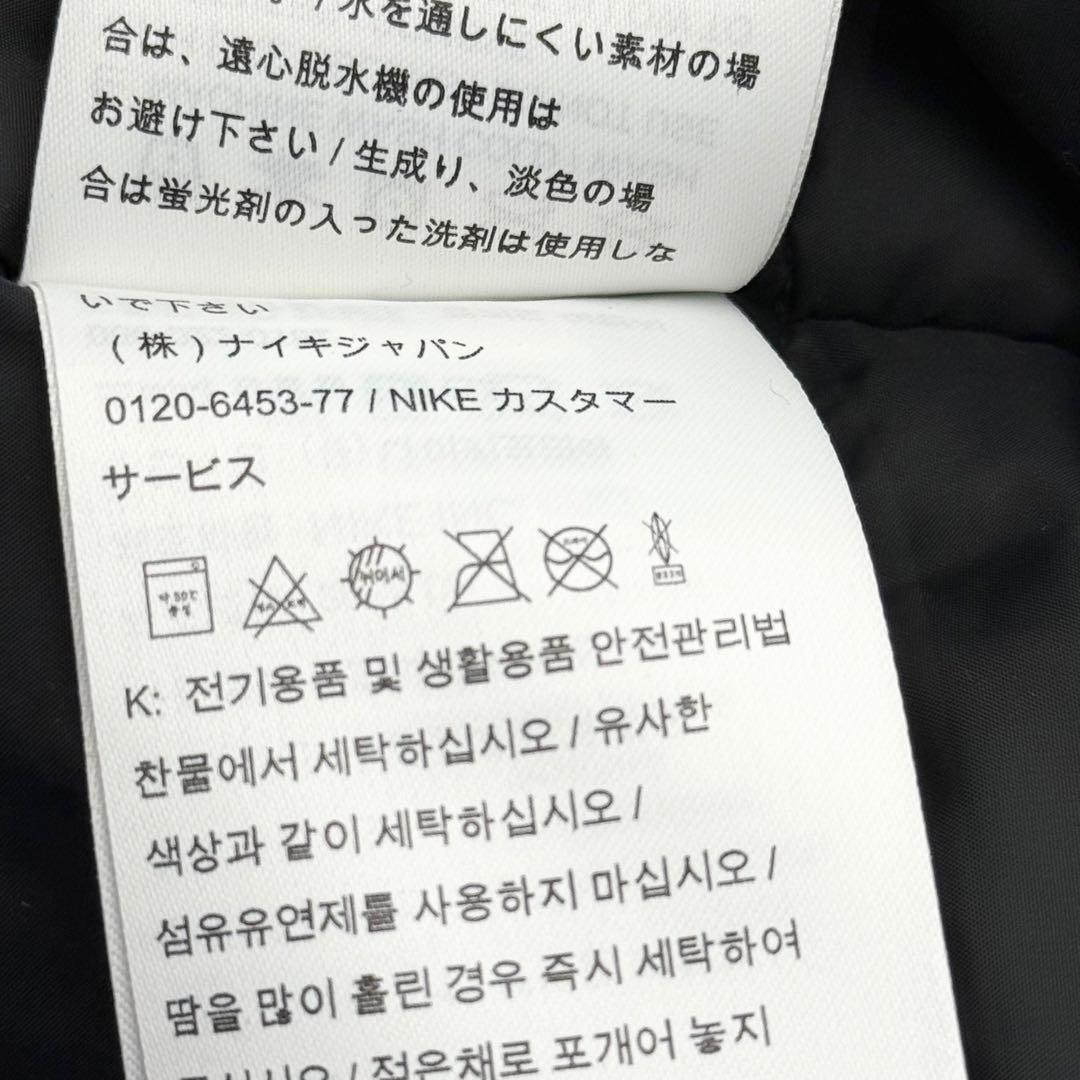 水を通しにくい素材の場
合は、遠心脱水機の使用は
お避け下さい / 生成り、淡色の場
合は蛍光剤の入った洗剤は使用しな
いで下さい
(株)ナイキジャパン
0120-6453-77 / NIKE カスタマー
サービス
뉘어서
K: 전기용품 및 생활용품 안전관리법
찬물에서 세탁하십시오 / 유사한
색상과 같이 세탁하십시오 /
섬유유연제를 사용하지 마십시오 /
땀을 많이 흘린 경우 즉시 세탁하여
/ 젖은채로 포개어 놓지